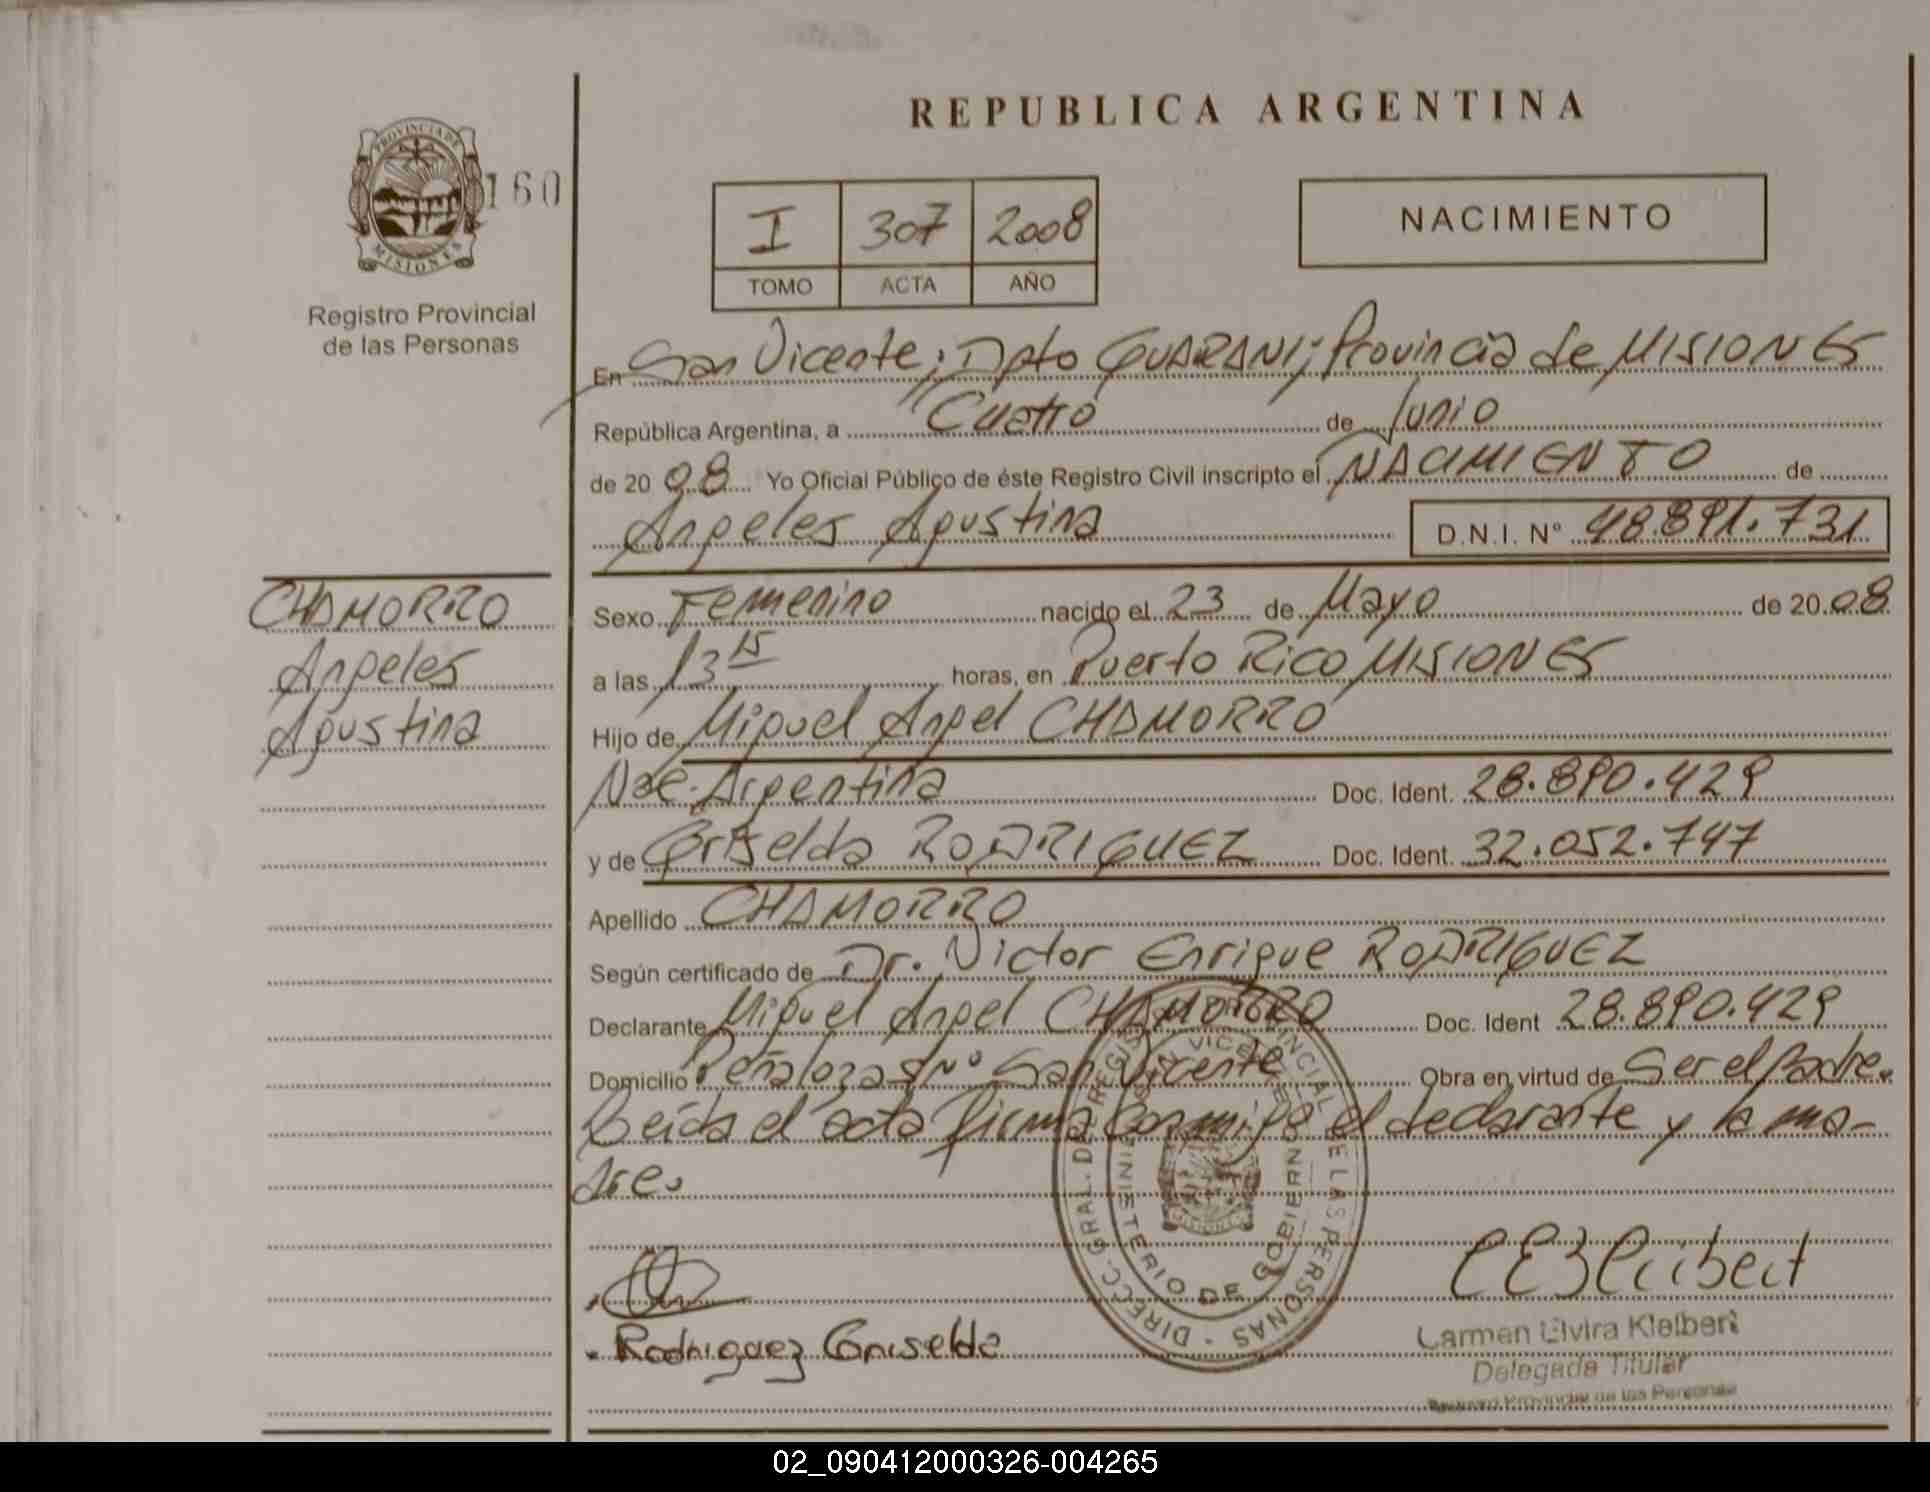 PROVINCIA DE
MISIONES
160
Registro Provincial
de las Personas
REPUBLICA ARGENTINA
I 307 2008
TOMO ACTA AÑO
NACIMIENTO
En San Vicente; Dpto GUARANI; Provincia de MISIONES
República Argentina, a Cuatro de Junio
de 2008 Yo Oficial Público de éste Registro Civil inscripto el NACIMIENTO de
Angeles Agustina D.N.I. Nº 48.891.731
CHAMORRO
Angeles
Agustina
Sexo Femenino nacido el 23 de Mayo de 2008
a las 13 15 horas, en Puerto Rico MISIONES
Hijo de Miguel Angel CHAMORRO
Nac. Argentina Doc. Ident. 28.890.429
y de Griselda RODRIGUEZ Doc. Ident. 32.052.747
Apellido CHAMORRO
Según certificado de Dr. Victor Enrique RODRIGUEZ
Declarante Miguel Angel CHAMORRO Doc. Ident 28.890.429
Domicilio Peñaloza S/Nº San Vicente Obra en virtud de Ser el Padre.
Leída el acta firma conmigo el declarante y la ma-
dre.
DIRECC. GRAL. DEL REGISTRO PROVINCIAL DE LAS PERSONAS
SAN VICENTE
MINISTERIO DE GOBIERNO
MISIONES
Rodriguez Griselda
Carmen Elvira Kleibert
Delegada Titular
Registro Provincial de las Personas
02_090412000326-004265